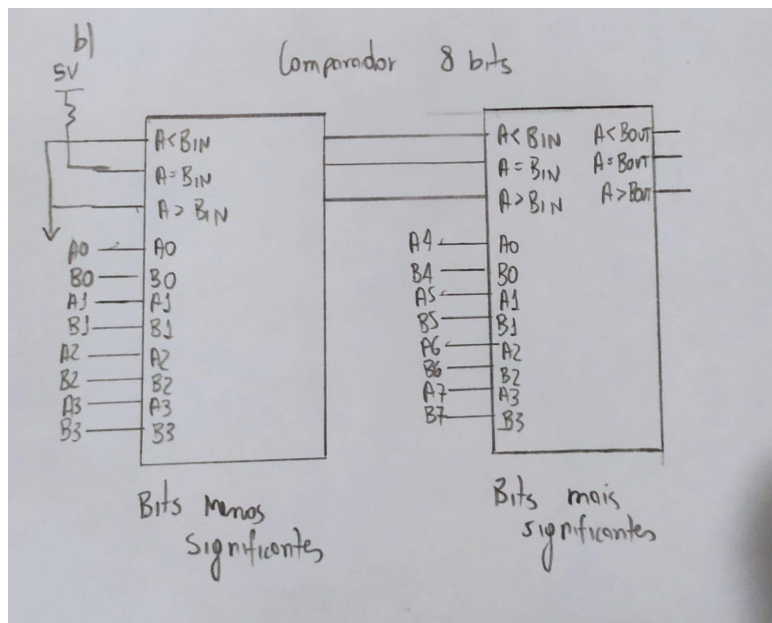 b)
Comparador 8 bits
5V
A<BIN
A=BIN
A>BIN
A0 A0
B0 B0
A1 A1
B1 B1
A2 A2
B2 B2
A3 A3
B3 B3
Bits menos
significantes
A<BIN A<BOUT
A=BIN A=BOUT
A>BIN A>BOUT
A4 A0
B4 B0
A5 A1
B5 B1
A6 A2
B6 B2
A7 A3
B7 B3
Bits mais
significantes